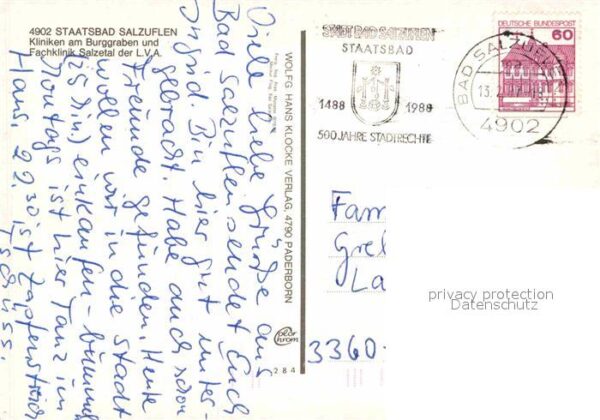 4902 STAATSBAD SALZUFLEN
Kliniken am Burggraben und
Fachklinik Salzetal der L.V.A.
Viele liebe Grüße aus
Bad Salzuflen sendet Euch
Ingrid. Bin hier gut unter-
gebracht. Habe auch schon
Freunde gefunden. Heute
wollen wir in die Stadt
(25 Min.) einkaufen - bummeln
Montags ist hier Tanz im
Haus. 22.30 ist Zapfenstreich
Tschüss.
WOLFG. HANS KLOCKE VERLAG, 4790 PADERBORN
color
chrom
284
STADT BAD SALZUFLEN
STAATSBAD
1488 1988
500 JAHRE STADTRECHTE
DEUTSCHE BUNDESPOST
60
BAD SALZUFLEN
13.2.
4902
Fam
Gre
La
3360
privacy protection
Datenschutz